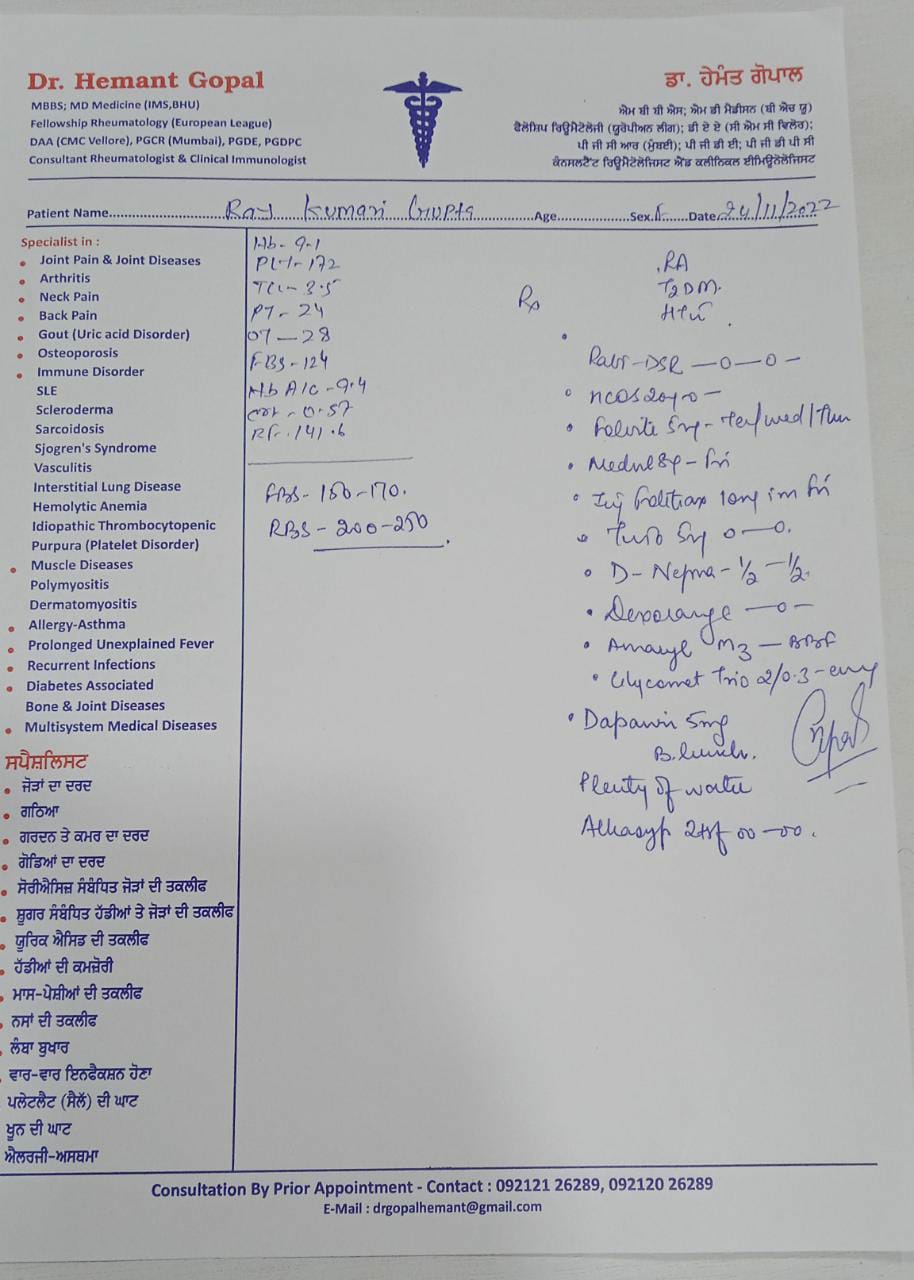 Dr. Hemant Gopal
MBBS; MD Medicine (IMS,BHU)
Fellowship Rheumatology (European League)
DAA (CMC Vellore), PGCR (Mumbai), PGDE, PGDPC
Consultant Rheumatologist & Clinical Immunologist
ਡਾ. ਹੇਮੰਤ ਗੋਪਾਲ
ਐਮ ਬੀ ਬੀ ਐਸ; ਐਮ ਡੀ ਮੈਡੀਸਨ (ਬੀ ਐਚ ਯੂ)
ਫੈਲੋਸ਼ਿਪ ਰਿਊਮੈਟੋਲੋਜੀ (ਯੂਰੋਪੀਅਨ ਲੀਗ); ਡੀ ਏ ਏ (ਸੀ ਐਮ ਸੀ ਵਿਲੋਰ);
ਪੀ ਜੀ ਸੀ ਆਰ (ਮੁੰਬਈ); ਪੀ ਜੀ ਡੀ ਈ; ਪੀ ਜੀ ਡੀ ਪੀ ਸੀ
ਕੰਨਸਲਟੈਂਟ ਰਿਊਮੈਟੋਲੋਜਿਸਟ ਐਂਡ ਕਲੀਨਿਕਲ ਈਮਿਊਨੋਲੋਜਿਸਟ
Patient Name Raj Kumari Gupta Age Sex F Date 24/11/2022
Specialist in :
Joint Pain & Joint Diseases
Arthritis
Neck Pain
Back Pain
Gout (Uric acid Disorder)
Osteoporosis
Immune Disorder
SLE
Scleroderma
Sarcoidosis
Sjogren's Syndrome
Vasculitis
Interstitial Lung Disease
Hemolytic Anemia
Idiopathic Thrombocytopenic
Purpura (Platelet Disorder)
Muscle Diseases
Polymyositis
Dermatomyositis
Allergy-Asthma
Prolonged Unexplained Fever
Recurrent Infections
Diabetes Associated
Bone & Joint Diseases
Multisystem Medical Diseases
ਸਪੈਸ਼ਲਿਸਟ
ਜੋੜਾਂ ਦਾ ਦਰਦ
ਗਠਿਆ
ਗਰਦਨ ਤੇ ਕਮਰ ਦਾ ਦਰਦ
ਗੋਡਿਆਂ ਦਾ ਦਰਦ
ਸੋਰੀਐਸਿਜ਼ ਸੰਬੰਧਿਤ ਜੋੜਾਂ ਦੀ ਤਕਲੀਫ
ਸ਼ੂਗਰ ਸੰਬੰਧਿਤ ਹੱਡੀਆਂ ਤੇ ਜੋੜਾਂ ਦੀ ਤਕਲੀਫ
ਯੂਰਿਕ ਐਸਿਡ ਦੀ ਤਕਲੀਫ
ਹੱਡੀਆਂ ਦੀ ਕਮਜ਼ੋਰੀ
ਮਾਸ-ਪੇਸ਼ੀਆਂ ਦੀ ਤਕਲੀਫ
ਨਸਾਂ ਦੀ ਤਕਲੀਫ
ਲੰਬਾ ਬੁਖਾਰ
ਵਾਰ-ਵਾਰ ਇਨਫੈਕਸ਼ਨ ਹੋਣਾ
ਪਲੇਟਲੈਟ (ਸੈੱਲ) ਦੀ ਘਾਟ
ਖੂਨ ਦੀ ਘਾਟ
ਐਲਰਜੀ-ਅਸਥਮਾ
Hb - 9.1
PLT - 172
TLC - 3.5
PT - 24
OT - 28
FBS - 124
HbA1C - 9.4
- 0.57
RF - 141.6
FBS - 150-170.
RBS - 200-250
Rx
RA
T2DM.
HTN
-DSR —0—0—
Folvite 5mg - Tue/wed/Thu
8mg - Fri
Inj 10mg im Fri
5mg 0—0.
D- - 1/2 — 1/2.
Dexorange —0—
Amaryl M3 — BBF
Glycomet Trio 2/0.3 -
5mg
B. lunch.
Plenty of water
2tsf 00—00.
Consultation By Prior Appointment - Contact : 092121 26289, 092120 26289
E-Mail : drgopalhemant@gmail.com